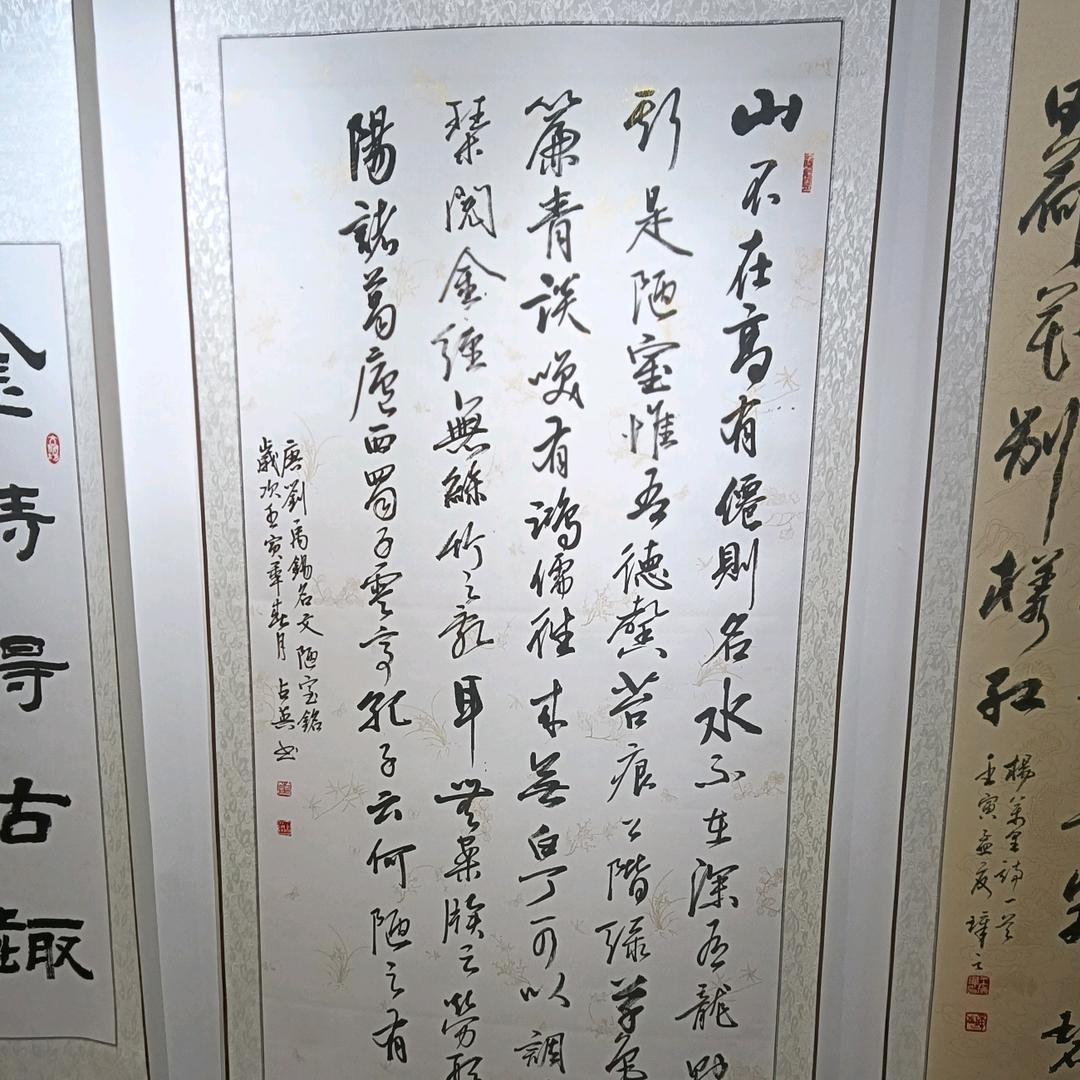 日荷花別樣紅
楊萬里詩一首
壬寅孟夏
山不在高有僊則名水不在深有龍則
斯是陋室惟吾德馨苔痕上階緑草色
簾青談笑有鴻儒往來無白丁可以調
琴閱金經無絲竹之亂耳無案牘之勞形
陽諸葛廬西蜀子雲亭孔子云何陋之有
唐劉禹錫名文陋室銘
歲次壬寅年春月占英书
壽得古趣